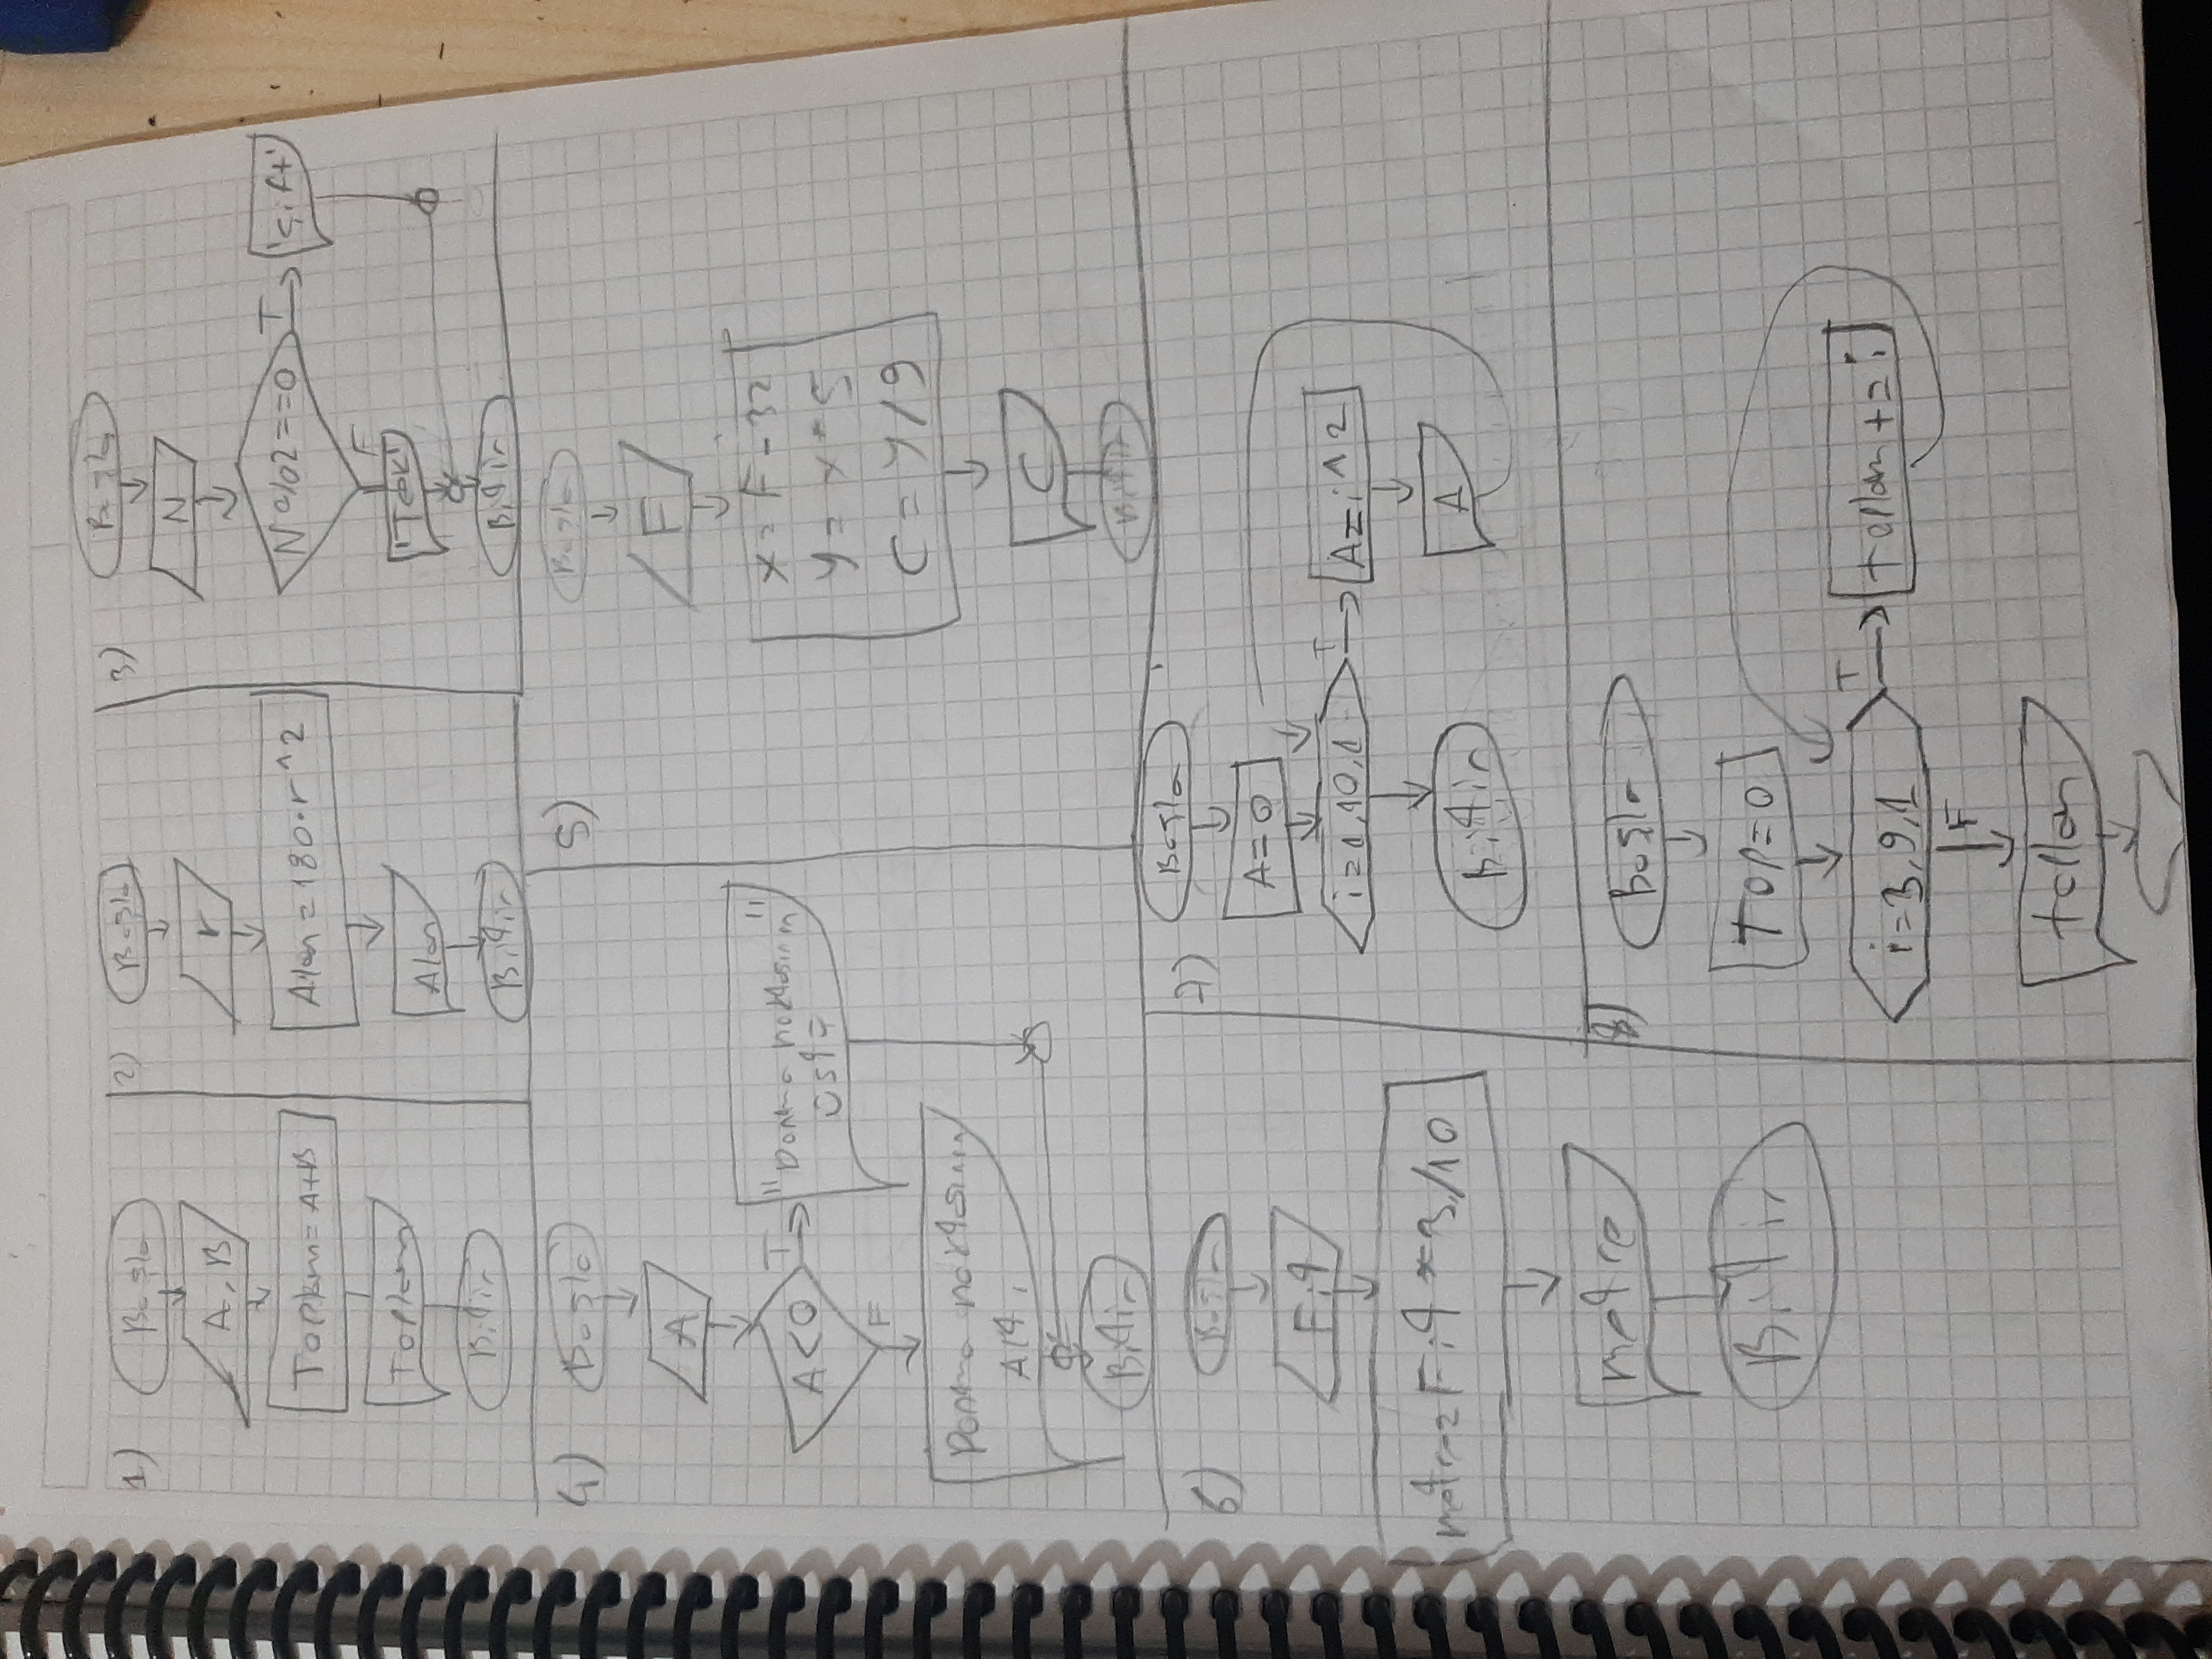 1)
Başla
A, B
Toplam=A+B
Toplam
Bitir
2)
Başla
r
Alan=180*r^2
Alan
Bitir
3)
Başla
N
N%2==0
T
'Çift'
F
'Tek'
Bitir
4)
Başla
A
A<0
T
"Donma noktasının"
üstü
F
Donma noktasının
Altı
Bitir
5)
Başla
F
x=F-32
y=x*5
C=y/9
C
Bitir
6)
Başla
Fit
metre=Fit*3/10
metre
Bitir
7)
Başla
A=0
i=1,10,1
T
A=i^2
A
Bitir
8)
Başla
Top=0
i=3,9,1
T
toplam+=i
F
toplam